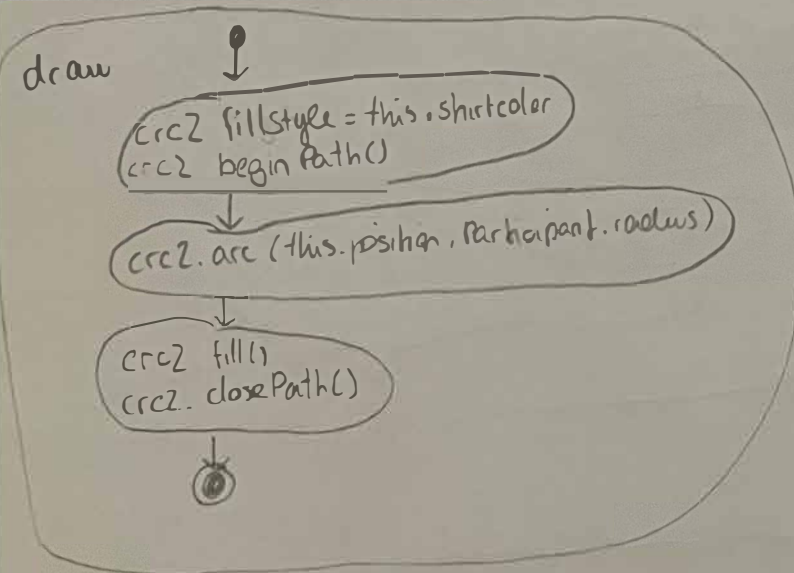 draw
crc2 fillstyle = this.shirtcolor
crc2 beginPath()
crc2.arc (this.position, Participant.radius)
crc2 fill()
crc2. closePath()